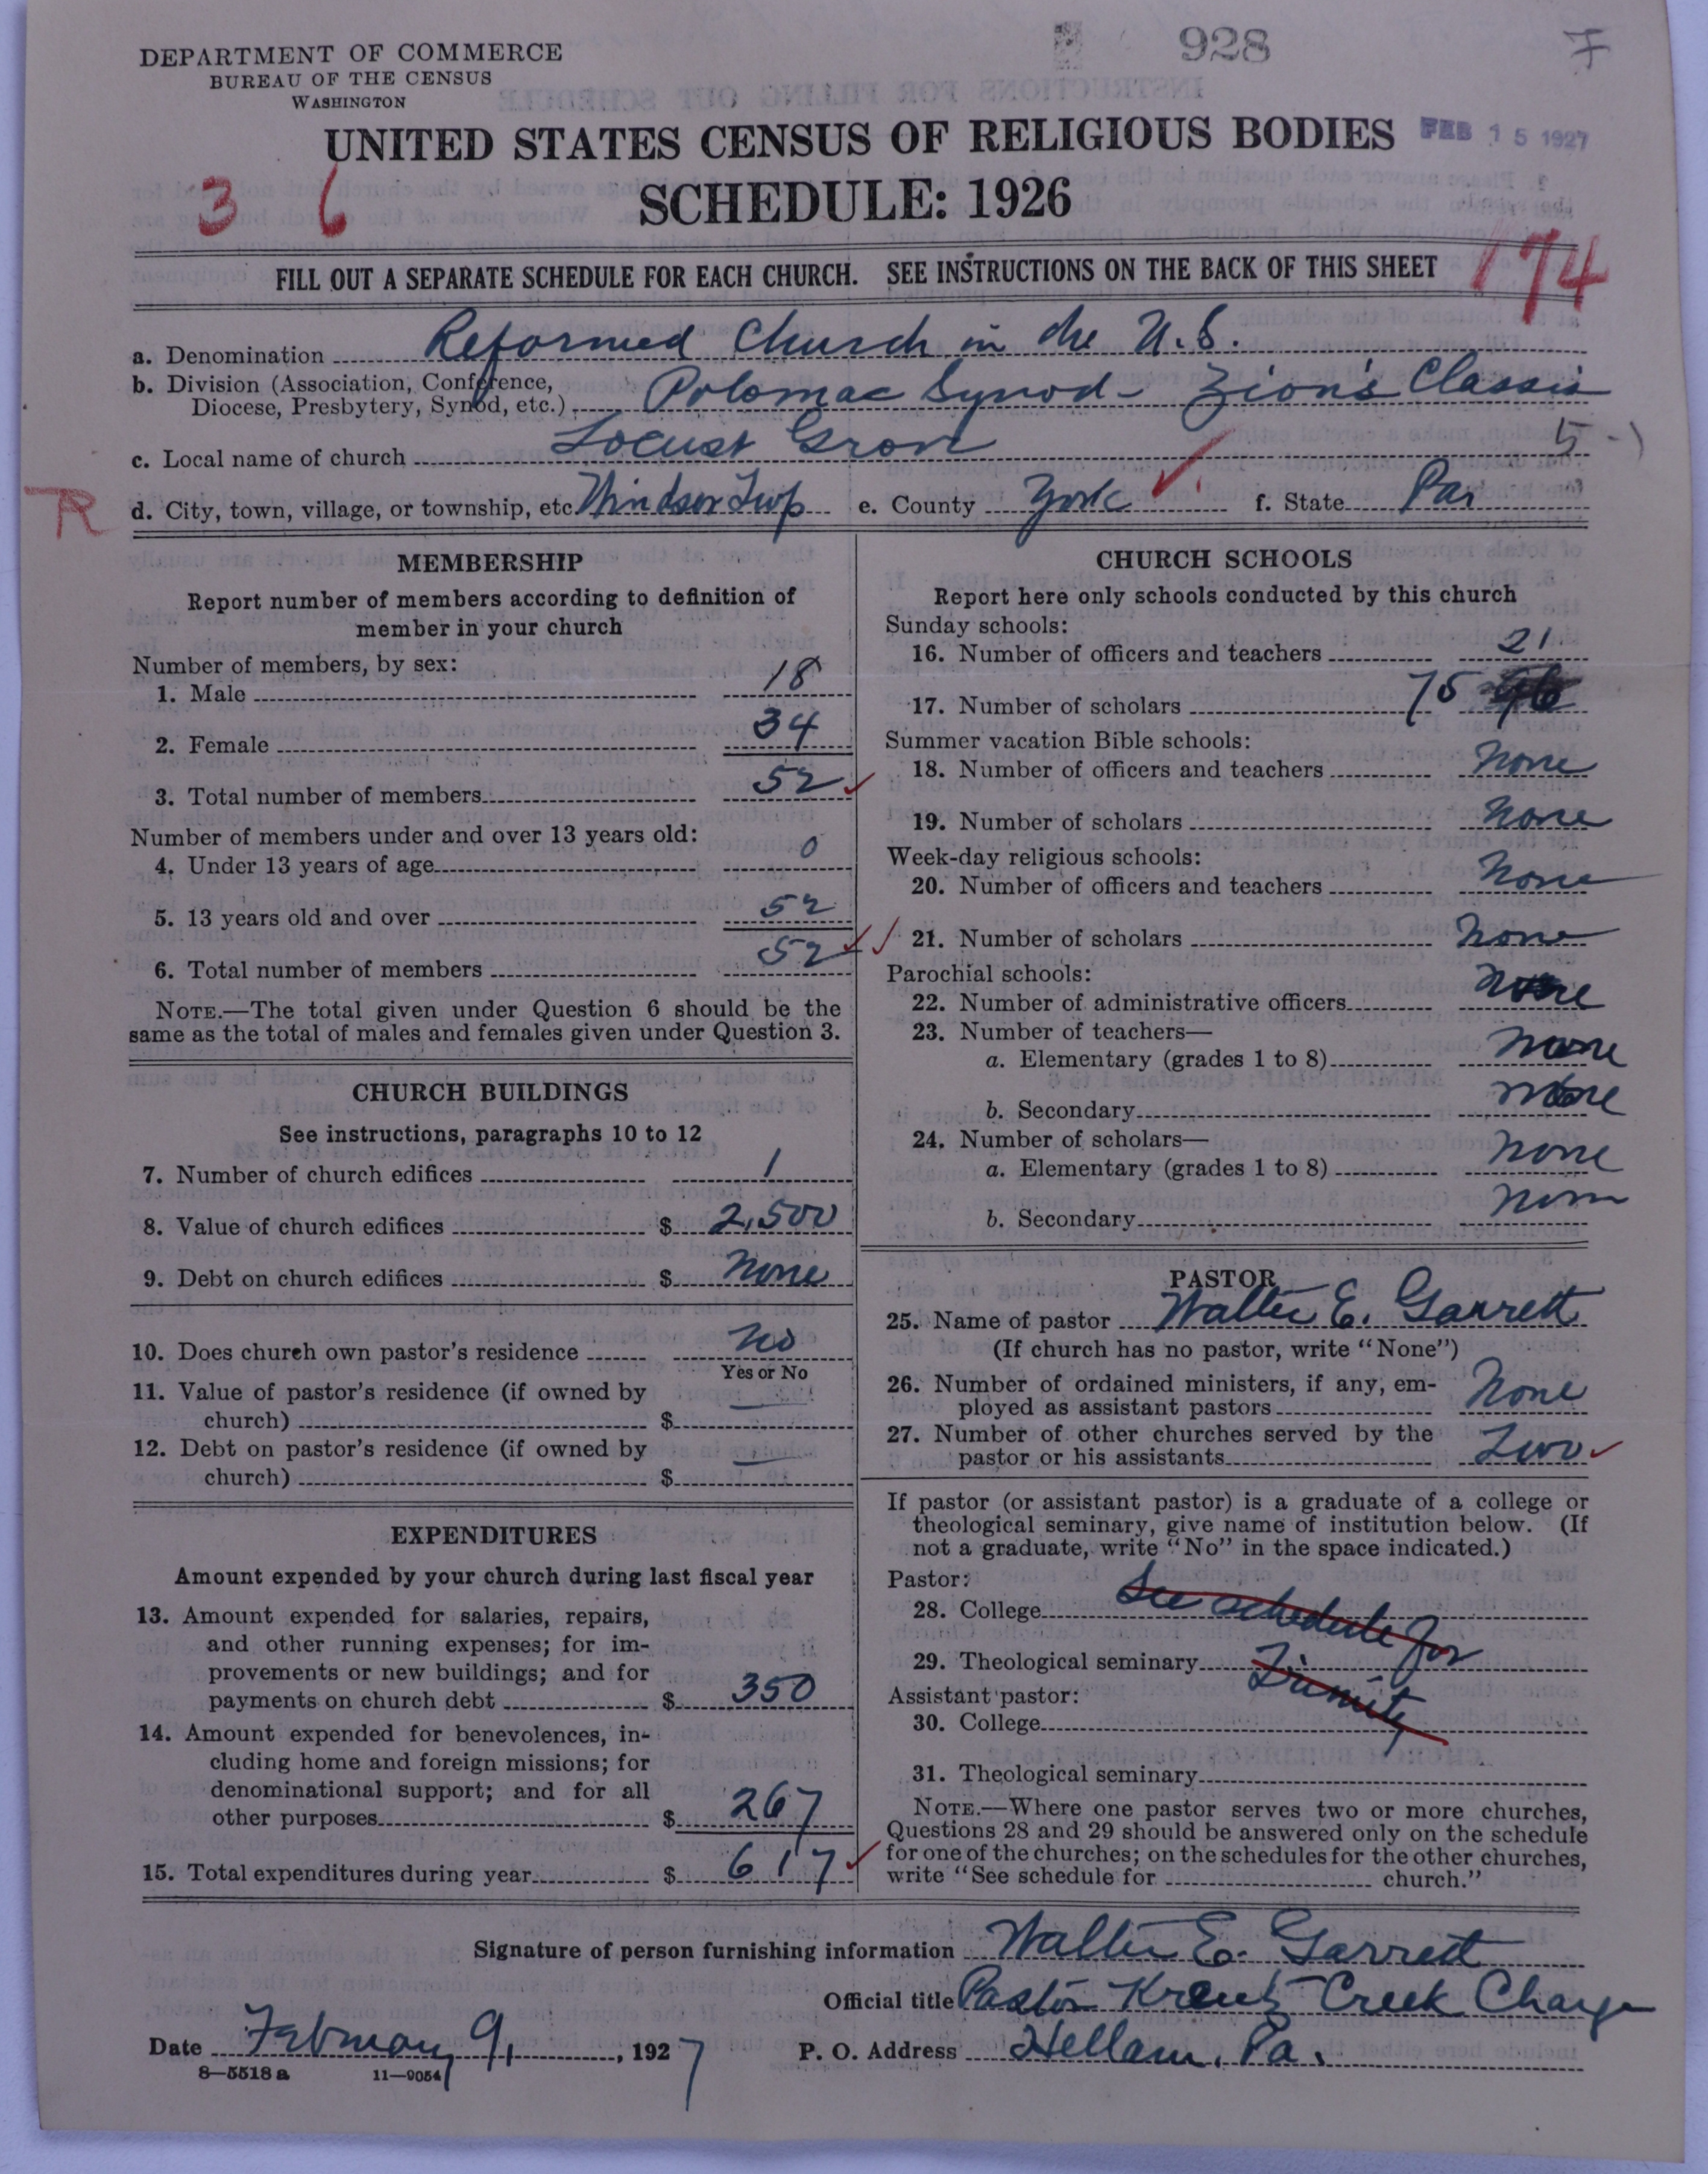 DEPARTMENT OF COMMERCE
BUREAU OF THE CENSUS
WASHINGTON
928
F
UNITED STATES CENSUS OF RELIGIOUS BODIES
FEB 15 1927
SCHEDULE: 1926
3 6
174
FILL OUT A SEPARATE SCHEDULE FOR EACH CHURCH. SEE INSTRUCTIONS ON THE BACK OF THIS SHEET
a. Denomination Reformed Church in the U.S.
b. Division (Association, Conference, Diocese, Presbytery, Synod, etc.) Potomac Synod - Zion's Classis
c. Local name of church Locust Grove
5
R
d. City, town, village, or township, etc. Windsor Twp e. County York f. State Pa.
MEMBERSHIP
Report number of members according to definition of
member in your church
Number of members, by sex:
1. Male 18
2. Female 34
3. Total number of members 52
Number of members under and over 13 years old:
4. Under 13 years of age 0
5. 13 years old and over 52
6. Total number of members 52
NOTE.—The total given under Question 6 should be the
same as the total of males and females given under Question 3.
CHURCH BUILDINGS
See instructions, paragraphs 10 to 12
7. Number of church edifices 1
8. Value of church edifices $ 2,500
9. Debt on church edifices $ None
10. Does church own pastor's residence No
Yes or No
11. Value of pastor's residence (if owned by
church) $ —
12. Debt on pastor's residence (if owned by
church) $ —
EXPENDITURES
Amount expended by your church during last fiscal year
13. Amount expended for salaries, repairs,
and other running expenses; for im-
provements or new buildings; and for
payments on church debt $ 350
14. Amount expended for benevolences, in-
cluding home and foreign missions; for
denominational support; and for all
other purposes $ 267
15. Total expenditures during year $ 617
CHURCH SCHOOLS
Report here only schools conducted by this church
Sunday schools:
16. Number of officers and teachers 21
17. Number of scholars 75
Summer vacation Bible schools:
18. Number of officers and teachers None
19. Number of scholars None
Week-day religious schools:
20. Number of officers and teachers None
21. Number of scholars None
Parochial schools:
22. Number of administrative officers None
23. Number of teachers—
a. Elementary (grades 1 to 8) None
b. Secondary None
24. Number of scholars—
a. Elementary (grades 1 to 8) None
b. Secondary None
PASTOR
25. Name of pastor Walter E. Garrett
(If church has no pastor, write "None")
26. Number of ordained ministers, if any, em-
ployed as assistant pastors None
27. Number of other churches served by the
pastor or his assistants Two
If pastor (or assistant pastor) is a graduate of a college or
theological seminary, give name of institution below. (If
not a graduate, write "No" in the space indicated.)
Pastor:
28. College See schedule for
29. Theological seminary Trinity
Assistant pastor:
30. College
31. Theological seminary
NOTE.—Where one pastor serves two or more churches,
Questions 28 and 29 should be answered only on the schedule
for one of the churches; on the schedules for the other churches,
write "See schedule for church."
Signature of person furnishing information Walter E. Garrett
Official title Pastor Kreutz Creek Charge
Date February 9, 1927 P. O. Address Hellam, Pa.
8—5518 a 11—9054